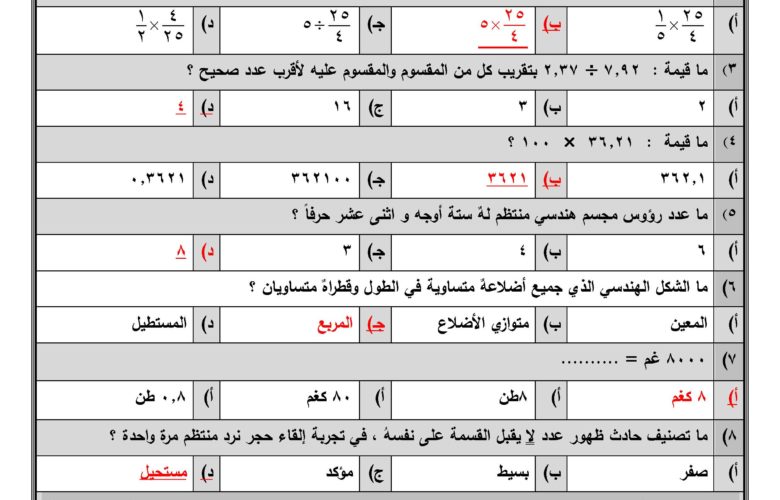 أ) ٢٥/٤ × ١/٥ ب) ٢٥/٤ × ٥ جـ) ٢٥/٤ ÷ ٥ د) ٤/٢٥ × ١/٢
٣) ما قيمة : ٧,٩٢ ÷ ٢,٣٧ بتقريب كل من المقسوم والمقسوم عليه لأقرب عدد صحيح ؟
أ) ٢ ب) ٣ ج) ١٦ د) ٤
٤) ما قيمة : ٣٦,٢١ × ١٠٠ ؟
أ) ٣٦٢,١ ب) ٣٦٢١ جـ) ٣٦٢١٠٠ د) ٠,٣٦٢١
٥) ما عدد رؤوس مجسم هندسي منتظم لهُ ستة أوجه و اثنى عشر حرفاً ؟
أ) ٦ ب) ٤ جـ) ٣ د) ٨
٦) ما الشكل الهندسي الذي جميع أضلاعهُ متساوية في الطول وقطراهُ متساويان ؟
أ) المعين ب) متوازي الأضلاع جـ) المربع د) المستطيل
٧) ٨٠٠٠ غم = ..........
أ) ٨ كغم أ) ٨طن أ) ٨٠ كغم أ) ٠,٨ طن
٨) ما تصنيف حادث ظهور عدد لا يقبل القسمة على نفسهُ ، في تجربة إلقاء حجر نرد منتظم مرة واحدة ؟
أ) صفر ب) بسيط ج) مؤكد د) مستحيل